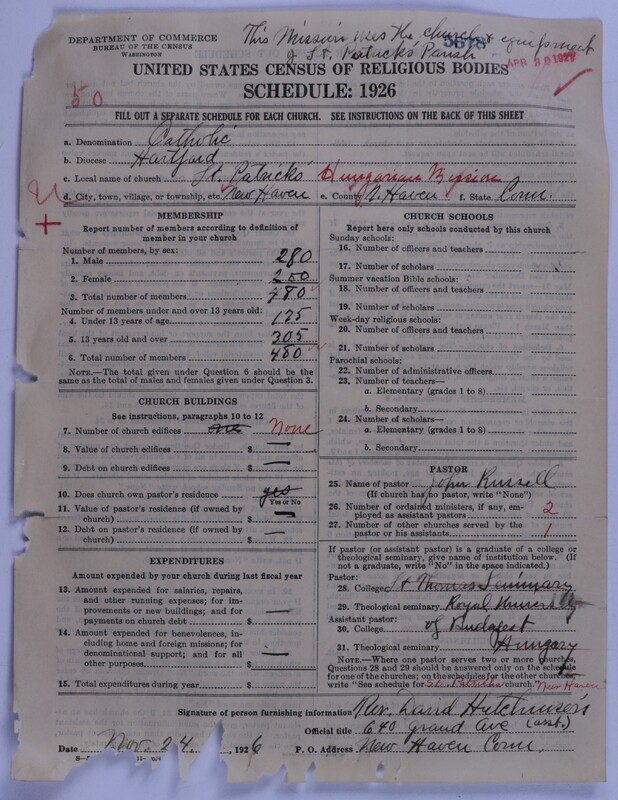 DEPARTMENT OF COMMERCE
BUREAU OF THE CENSUS
WASHINGTON
This Mission uses the church & equipment
of St. Patricks Parish
5678
APR 30 1927
50
UNITED STATES CENSUS OF RELIGIOUS BODIES
SCHEDULE: 1926
FILL OUT A SEPARATE SCHEDULE FOR EACH CHURCH. SEE INSTRUCTIONS ON THE BACK OF THIS SHEET
a. Denomination Catholic
b. Diocese Hartford
c. Local name of church St. Patricks' Hungarian Mission
d. City, town, village, or township, etc. New Haven e. County N. Haven f. State Conn.
MEMBERSHIP
Report number of members according to definition of
member in your church
Number of members, by sex:
1. Male 280
2. Female 200
3. Total number of members 480
Number of members under and over 13 years old:
4. Under 13 years of age 175
5. 13 years old and over 305
6. Total number of members 480
NOTE.—The total given under Question 6 should be the
same as the total of males and females given under Question 3.
CHURCH BUILDINGS
See instructions, paragraphs 10 to 12
7. Number of church edifices one None
8. Value of church edifices $ —
9. Debt on church edifices $ —
10. Does church own pastor's residence yes
Yes or No
11. Value of pastor's residence (if owned by
church) $ —
12. Debt on pastor's residence (if owned by
church) $ —
EXPENDITURES
Amount expended by your church during last fiscal year
13. Amount expended for salaries, repairs,
and other running expenses; for im-
provements or new buildings; and for
payments on church debt $ —
14. Amount expended for benevolences, in-
cluding home and foreign missions; for
denominational support; and for all
other purposes $ —
15. Total expenditures during year $
CHURCH SCHOOLS
Report here only schools conducted by this church
Sunday schools:
16. Number of officers and teachers
17. Number of scholars
Summer vacation Bible schools:
18. Number of officers and teachers
19. Number of scholars
Week-day religious schools:
20. Number of officers and teachers
21. Number of scholars
Parochial schools:
22. Number of administrative officers
23. Number of teachers—
a. Elementary (grades 1 to 8)
b. Secondary
24. Number of scholars—
a. Elementary (grades 1 to 8)
b. Secondary
PASTOR
25. Name of pastor John Russell
(If church has no pastor, write "None")
26. Number of ordained ministers, if any, em-
ployed as assistant pastors 2
27. Number of other churches served by the
pastor or his assistants 1
If pastor (or assistant pastor) is a graduate of a college or
theological seminary, give name of institution below. (If
not a graduate, write "No" in the space indicated.)
Pastor:
28. College St Thomas Seminary
29. Theological seminary Royal University
Assistant pastor:
30. College of Budapest
31. Theological seminary Hungary
NOTE.—Where one pastor serves two or more churches,
Questions 28 and 29 should be answered only on the schedule
for one of the churches; on the schedules for the other churches,
write "See schedule for St. Patricks church." New Haven
Signature of person furnishing information Rev. David Hutchinson
Official title 640 Grand Ave (asst.)
Date Nov. 24. , 1926 P. O. Address New Haven Conn.